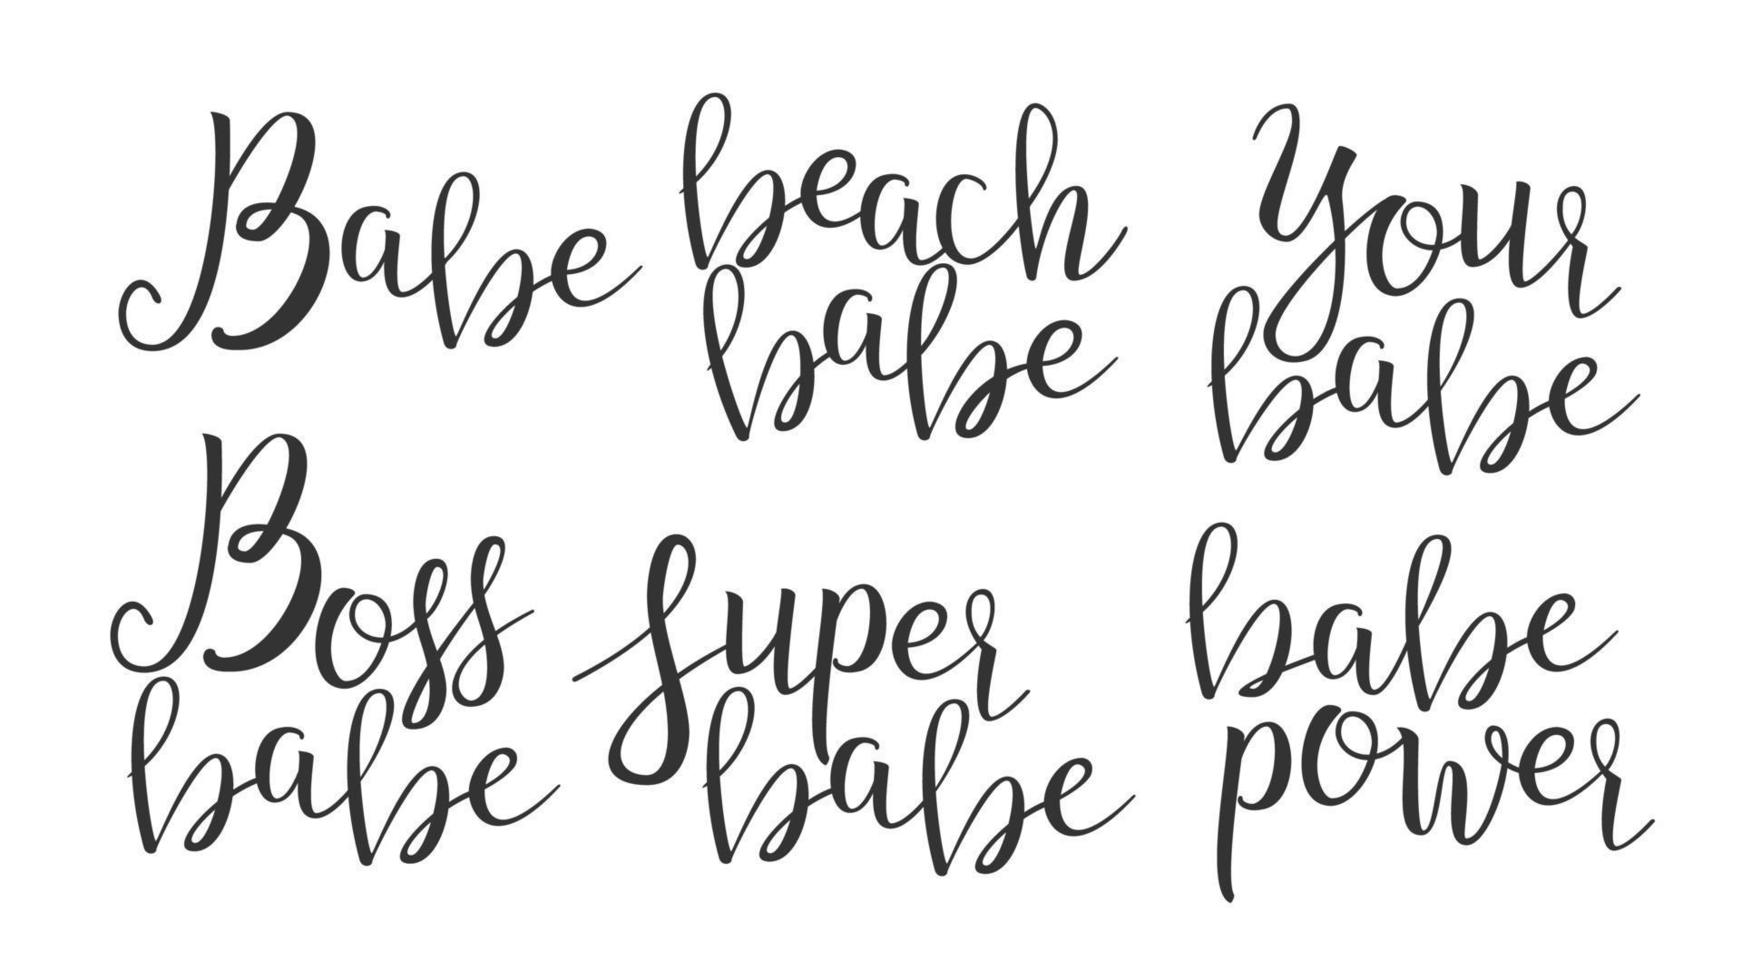 Babe
beach
babe
Your
babe
Boss
babe
super
babe
babe
power